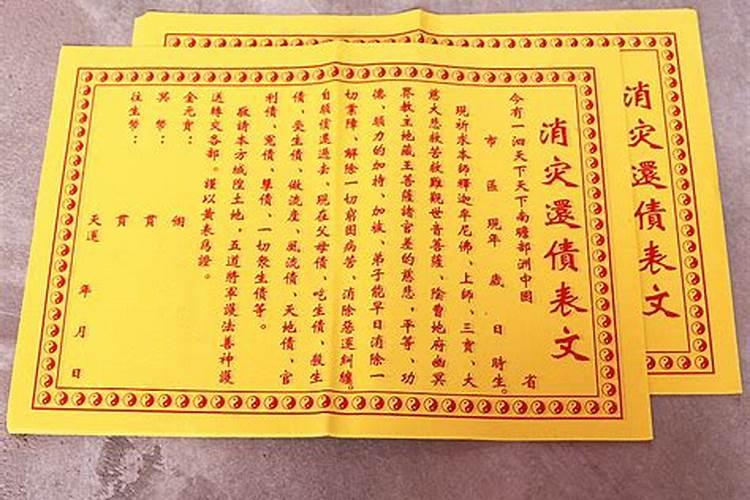 消灾還債表文
今有一泗天下天下南瞻部洲中國 省
市 區 現年 歲 日 時生。
現祈求本師釋迦牟尼佛、上師、三寶、大
慈大悲救苦救難觀世音菩薩、陰曹地府幽冥
界教主地藏王菩薩諸官差的慈悲，平等、功
德、願力的加持、加被、弟子能早日消除一
切業障、解除一切窮困病苦、消除惡運糾纏。
自願償還過去、現在父母債、吃生債、殺生
債、受生債、做流產、風流債、天地債、官
利債、冤債、孽債、一切衆生債等。
敬請本方城隍土地，五道將軍護法善神護
送轉交各部。謹以黃表爲證。
金元寶： 綑
冥幣： 貫
往生幣： 貫
天運 年 月 日
消灾還債表文